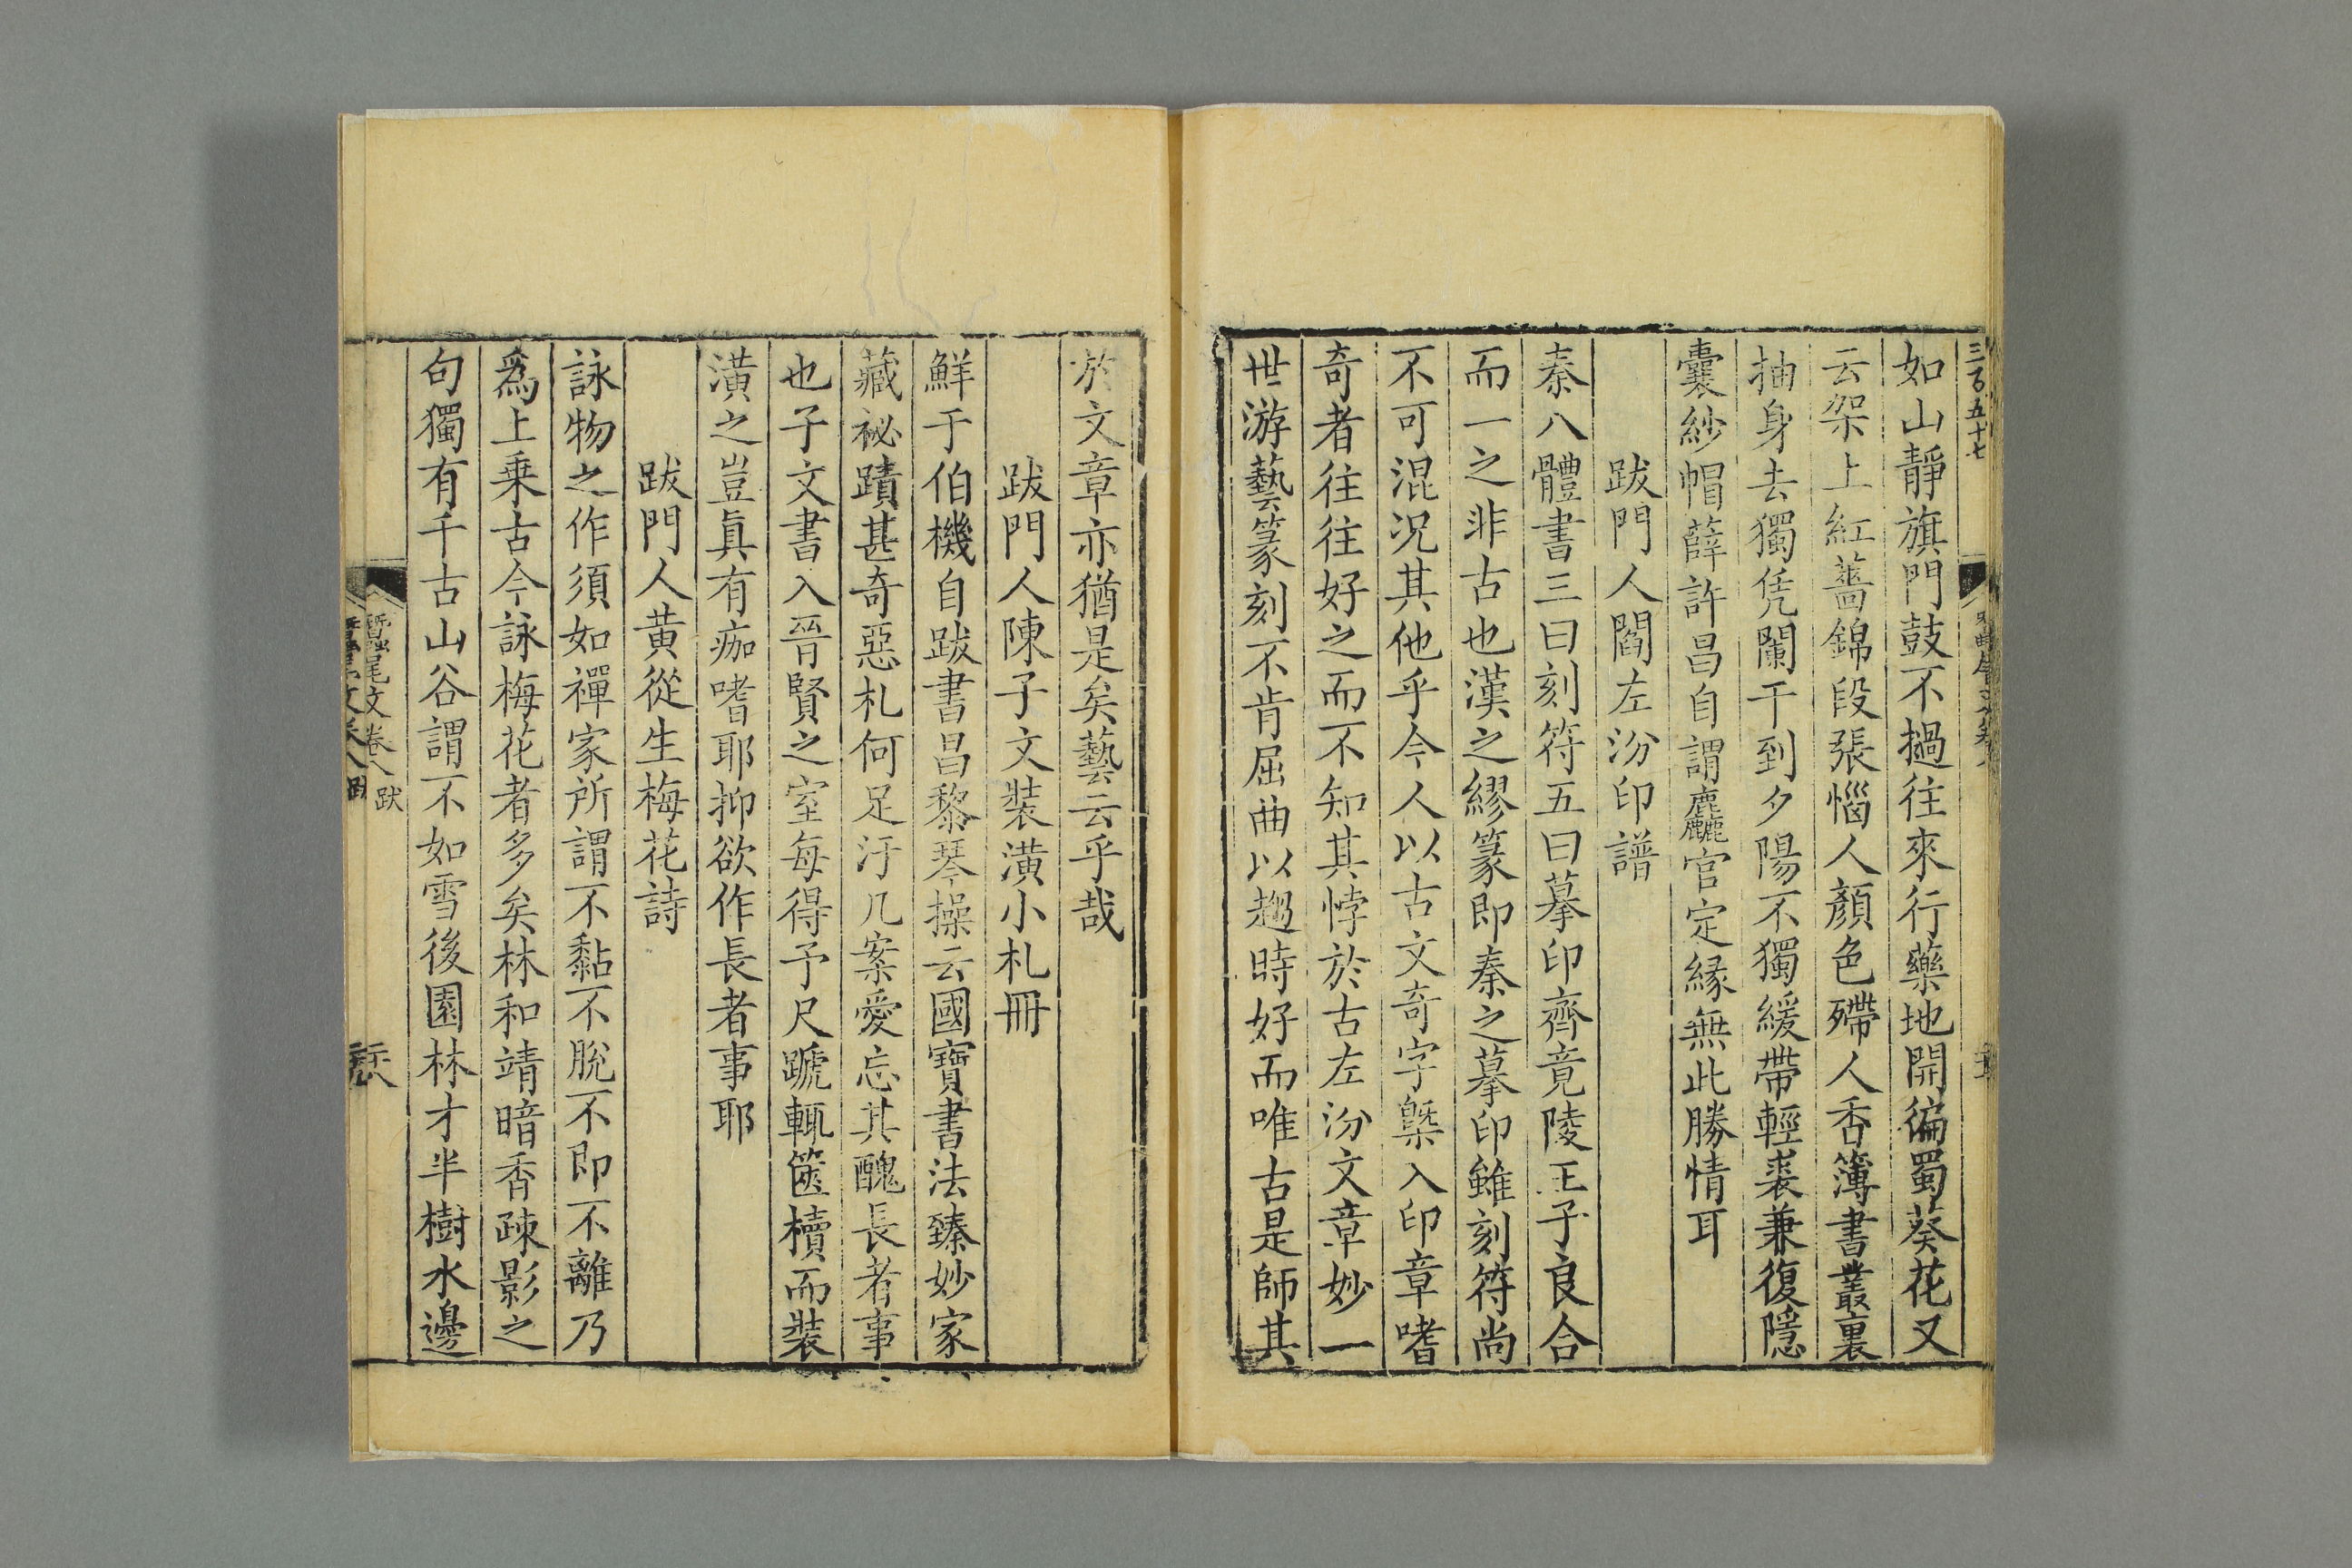 三百五十七
如山靜旗門鼓不撾往來行藥地開徧蜀葵花又
云架上紅薔錦段張惱人顏色殢人香簿書叢裏
抽身去獨凭闌干到夕陽不獨緩帶輕裘兼復隱
囊紗帽薛許昌自謂麤官定緣無此勝情耳
跋門人閻左汾印譜
秦八體書三曰刻符五曰摹印齊竟陵王子良合
而一之非古也漢之繆篆即秦之摹印雖刻符尚
不可混況其他乎今人以古文奇字槩入印章嗜
奇者往往好之而不知其悖於古左汾文章妙一
世游藝篆刻不肯屈曲以趨時好而唯古是師其
於文章亦猶是矣藝云乎哉
跋門人陳子文裝潢小札冊
鮮于伯機自跋書昌黎琴操云國寶書法臻妙家
藏祕蹟甚奇惡札何足汙几案愛忘其醜長者事
也子文書入晉賢之室每得予尺蹏輒篋櫝而裝
潢之豈真有痂嗜耶抑欲作長者事耶
跋門人黃從生梅花詩
詠物之作須如禪家所謂不黏不脫不即不離乃
為上乗古今詠梅花者多矣林和靖暗香疎影之
句獨有千古山谷謂不如雪後園林才半樹水邊
蠶尾文卷八 跋